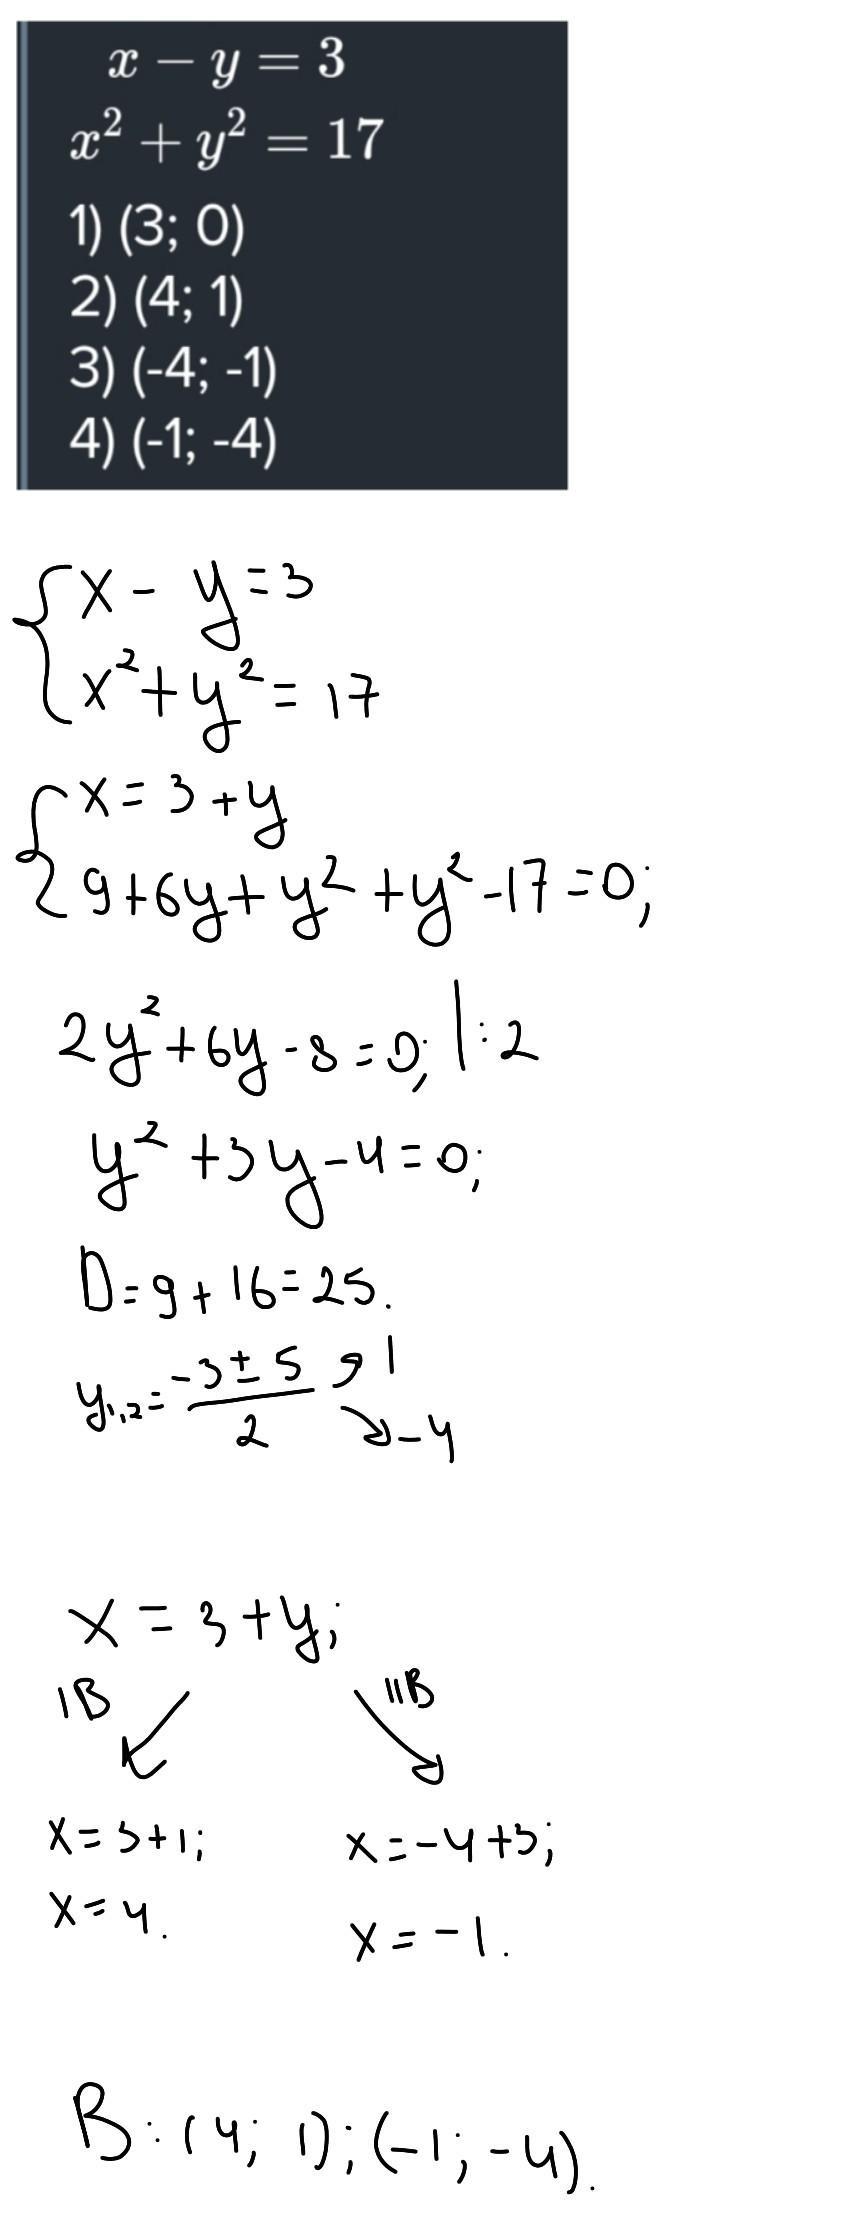 x − y = 3
x² + y² = 17
1) (3; 0)
2) (4; 1)
3) (-4; -1)
4) (-1; -4)
{ x - y = 3
x² + y² = 17
{ x = 3 + y
9 + 6y + y² + y² - 17 = 0;
2y² + 6y - 8 = 0; | : 2
y² + 3y - 4 = 0;
D = 9 + 16 = 25.
y₁,₂ = (-3 ± 5)/2 ↗ 1
↘ -4
x = 3 + y;
IB ↙ ↘ IIB
x = 3 + 1; x = -4 + 3;
x = 4. x = -1.
B: (4; 1); (-1; -4).